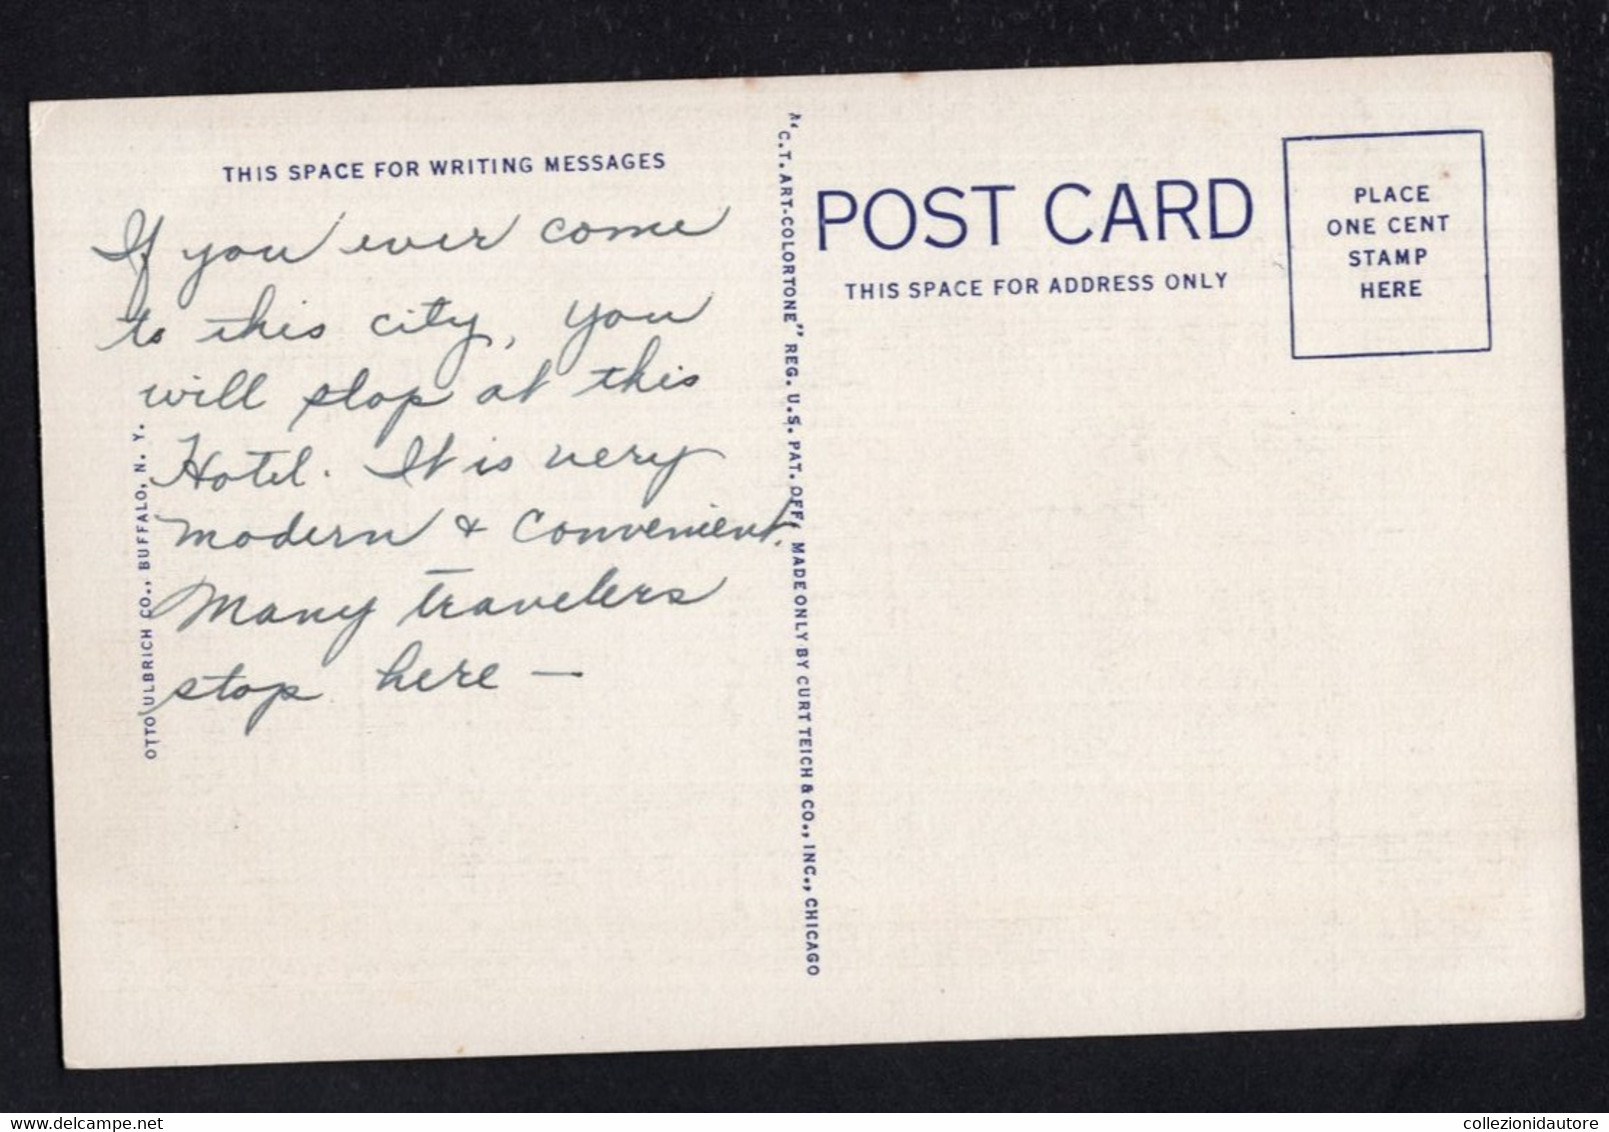 THIS SPACE FOR WRITING MESSAGES
If you ever come
to this city, you
will stop at this
Hotel. It is very
modern & convenient.
Many travelers
stop here —
OTTO ULBRICH CO., BUFFALO, N. Y.
"C.T. ART-COLORTONE" REG. U.S. PAT. OFF. MADE ONLY BY CURT TEICH & CO., INC., CHICAGO
POST CARD
THIS SPACE FOR ADDRESS ONLY
PLACE
ONE CENT
STAMP
HERE
www.delcampe.net
collezionidautore